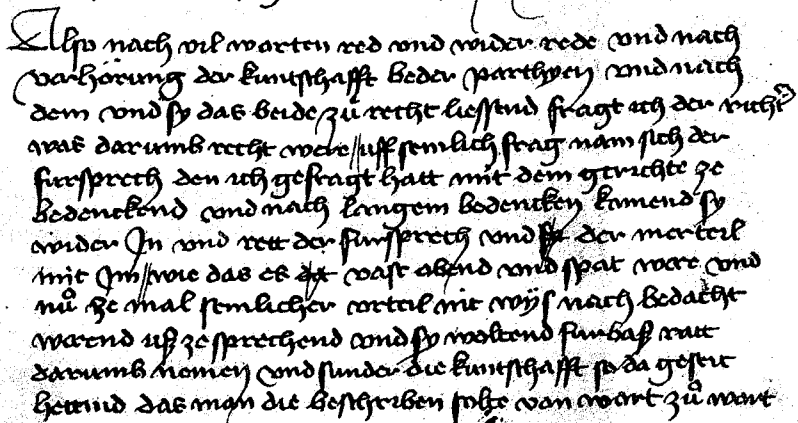 Also nach vil worten red vnd wider rede vnd nach
verhörung der kuntschafft beder parthyen vnd nach
dem vnd sy das beide zů recht liessend fragt ich der richter
was darumb recht were // uff semlich frag nam sich der
fursprech den ich gefragt hatt mit dem gerichte ze
bedenckend vnd nach langem bedencken kamend sy
wider Jn vnd rett der fursprech vnd der merteil
mit Jm // wie das es vast abend vnd spat were vnd
nů ze mal semlicher vrteil nit wÿs nach bedacht
warend uß ze sprechend vnd sy woltend furbaß ratt
darumb nemen vnd sunder die kuntschafft so da geseit
hettind das man die beschriben solte von wort zů wort